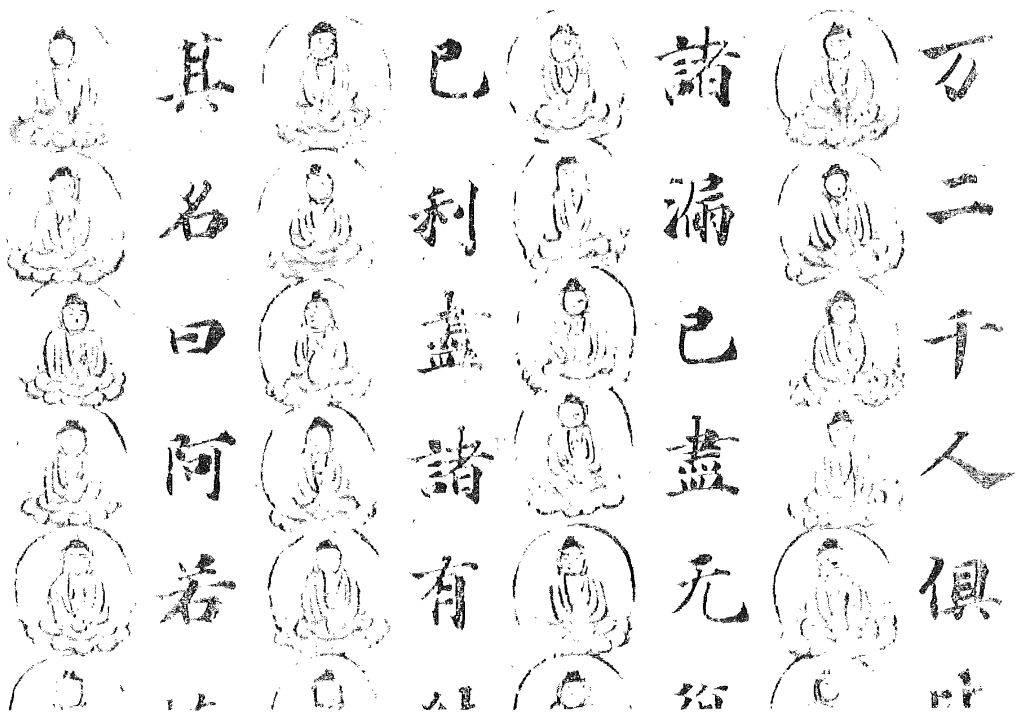 万二千人俱
諸漏已盡无
已利盡諸有
其名曰阿若